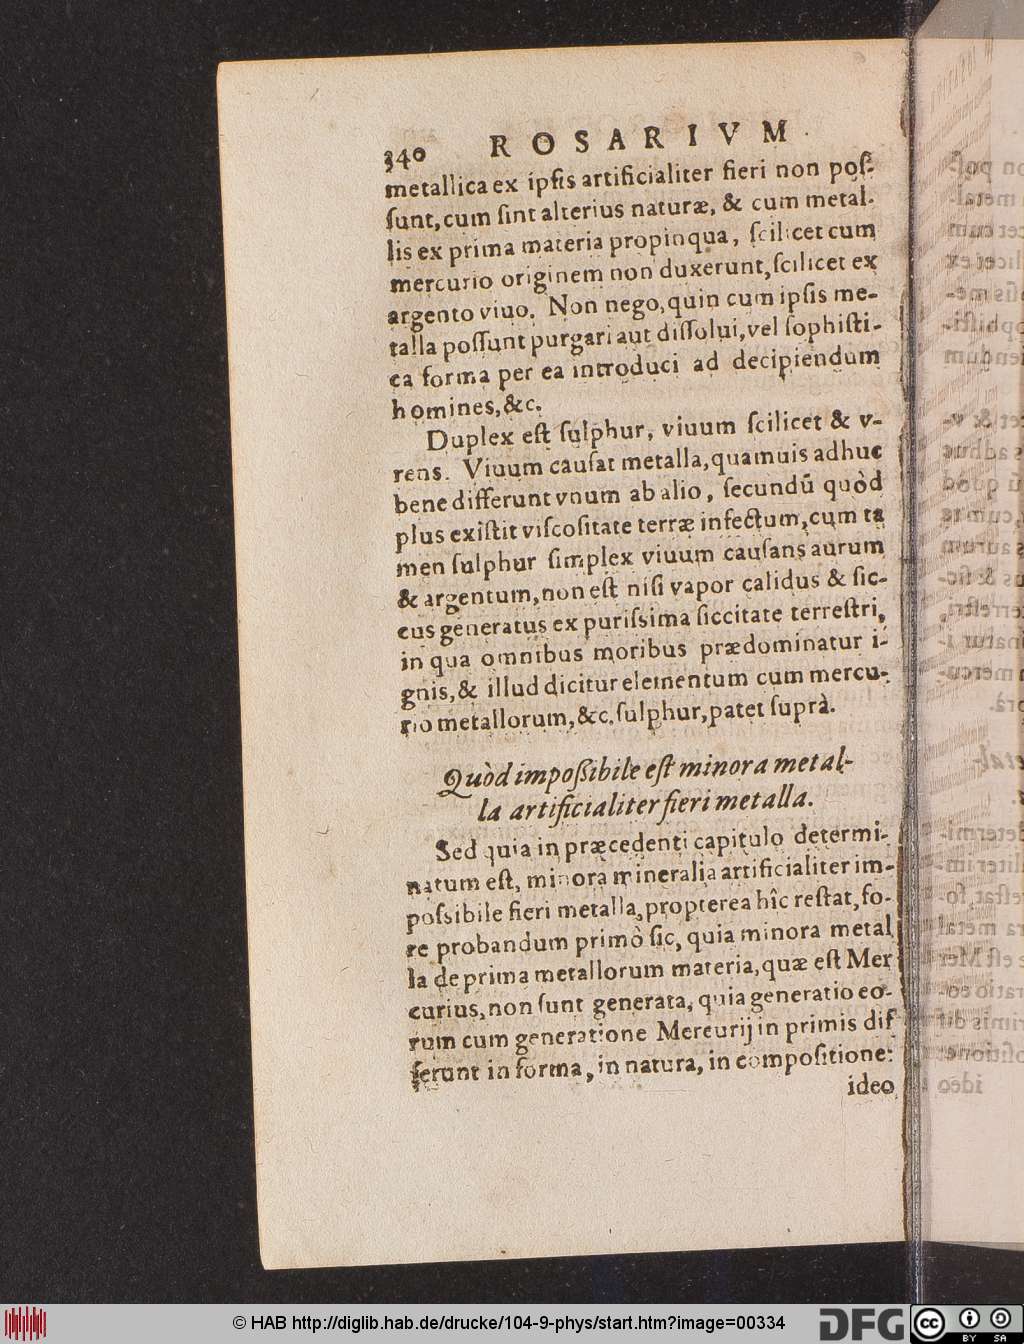 340 ROSARIVM
metallica ex ipsis artificialiter fieri non pos-
sunt, cum sint alterius naturæ, & cum metal-
lis ex prima materia propinqua, scilicet cum
mercurio originem non duxerunt, scilicet ex
argento viuo. Non nego, quin cum ipsis me-
talla possunt purgari aut dissolui, vel sophisti-
ca forma per ea introduci ad decipiendum
homines, &c.
Duplex est sulphur, viuum scilicet & v-
rens. Viuum causat metalla, quamuis adhuc
bene differunt vnum ab alio, secundũ quòd
plus existit viscositate terræ infectum, cum ta
men sulphur simplex viuum causans aurum
& argentum, non est nisi vapor calidus & sic-
cus generatus ex purissima siccitate terrestri,
in qua omnibus moribus prædominatur i-
gnis, & illud dicitur elementum cum mercu-
rio metallorum, &c. sulphur, patet suprà.
Quòd impossibile est minora metal-
la artificialiter fieri metalla.
Sed quia in præcedenti capitulo determi-
natum est, minora mineralia artificialiter im-
possibile fieri metalla, propterea hîc restat, fo-
re probandum primò sic, quia minora metal
la de prima metallorum materia, quæ est Mer
curius, non sunt generata, quia generatio eo-
rum cum generatione Mercurij in primis dif
ferunt in forma, in natura, in compositione:
ideo
© HAB http://diglib.hab.de/drucke/104-9-phys/start.htm?image=00334
DFG
cc BY SA